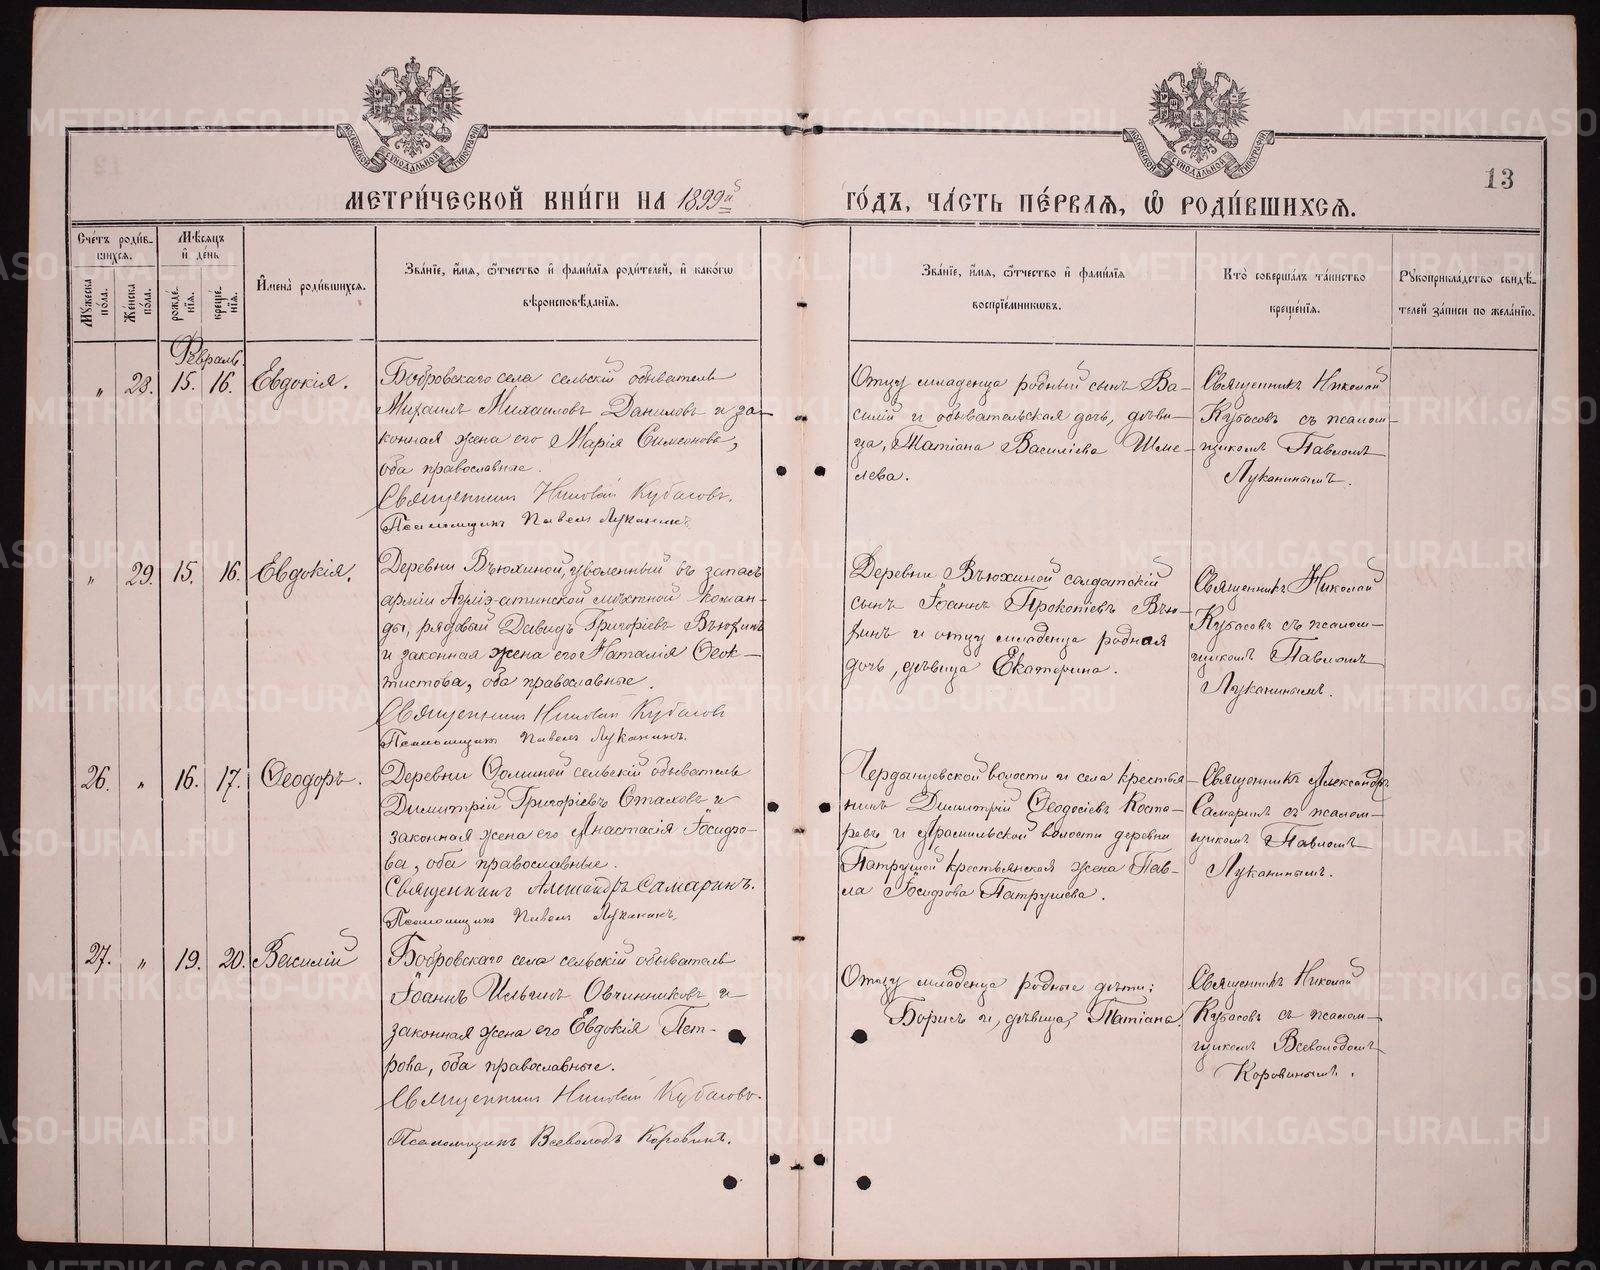 МОСКОВСКОЙ СѴНОДАЛЬНОЙ ТИПОГРАФІИ
МОСКОВСКОЙ СѴНОДАЛЬНОЙ ТИПОГРАФІИ
13
МЕТРИ́ЧЕСКОЙ КНИ́ГИ НА 1899й
ГО́ДЪ, ЧА́СТЬ ПЕ́РВАѦ, Ѡ РОДИ́ВШИХСѦ.
Сче́тъ роди́вшихся.
Мꙋжеска по́ла.
Же́нска по́ла.
Мѣ́сяцъ и де́нь
рожде́нія.
креще́нія.
Имена̀ роди́вшихся.
Зва́ніе, и́мя, ѻ҆́тчество и фами́лія роди́телей, и како́гѡ
вѣроисповѣ́данія.
Зва́ніе, и́мя, ѻ҆́тчество и фами́лія
воспріе́мникѡвъ.
Кто̀ соверша́лъ та́инство
креще́нія.
Рꙋкоприкла́дство свидѣ́-
телей за́писи по жела́нію.
Февраль.
„ 28. 15. 16. Евдокія.
Бобровскаго села сельскій обыватель
Михаилъ Михаиловъ Даниловъ и за-
конная жена его Марія Симеонова,
оба православные.
Священникъ Николай Кубасовъ.
Псаломщикъ Павелъ Луканинъ
Отцу младенца родный сынъ Ва-
силій и обывательская дочь, дѣви-
ца, Татіана Василіева Шме-
лева.
Священникъ Николай
Кубасовъ съ псалом-
щикомъ Павломъ
Луканинымъ.
„ 29. 15. 16. Евдокія.
Деревни Вьюхиной, уволенный въ запасъ
арміи Ауліэ-атинской мѣстной коман-
ды, рядовый Давидъ Григоріевъ Вьюхинъ
и законная жена его Наталія Ѳеок-
тистова, оба православные.
Священникъ Николай Кубасовъ
Псаломщикъ Павелъ Луканинъ.
Деревни Вьюхиной солдатскій
сынъ Іоаннъ Прокопіевъ Вью-
хинъ и отцу младенца родная
дочь, дѣвица Екатерина.
Священникъ Николай
Кубасовъ съ псалом-
щикомъ Павломъ
Луканинымъ.
26. „ 16. 17. Ѳеодоръ.
Деревни Ѳоминой сельскій обыватель
Димитрій Григоріевъ Стаховъ и
законная жена его Анастасія Іосифо-
ва, оба православные.
Священникъ Александръ Самаринъ.
Псаломщикъ Павелъ Луканинъ.
Чердынцевской волости и села крестья-
нинъ Димитрій Ѳеодосіевъ Косто-
ревъ и Арамильской волости деревни
Патрушевой крестьянская жена Пав-
ла Іосифова Патрушева.
Священникъ Александръ
Самаринъ съ псалом-
щикомъ Павломъ
Луканинымъ.
27. „ 19. 20. Василій
Бобровскаго села сельскій обыватель
Іоаннъ Ильинъ Овчинниковъ и
законная жена его Евдокія Пет-
рова, оба православные.
Священникъ Николай Кубасовъ.
Псаломщикъ Всеволодъ Коровинъ.
Отцу младенца родные дѣти:
Борисъ и, дѣвица, Татіана.
Священникъ Николай
Кубасовъ съ псалом-
щикомъ Всеволодомъ
Коровинымъ.
METRIKI.GASO-URAL.RU